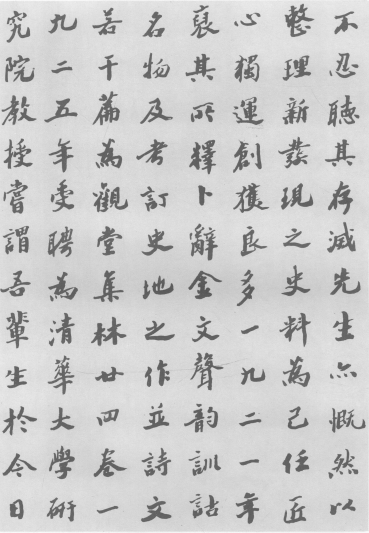 不忍聽其存滅先生亦慨然以
整理新發現之史料為己任匠
心獨運創獲良多一九二一年
裒其所釋卜辭金文聲韵訓詁
名物及考訂史地之作並詩文
若干篇為觀堂集林廿四卷一
九二五年受聘為清華大學研
究院教授嘗謂吾輩生於今日